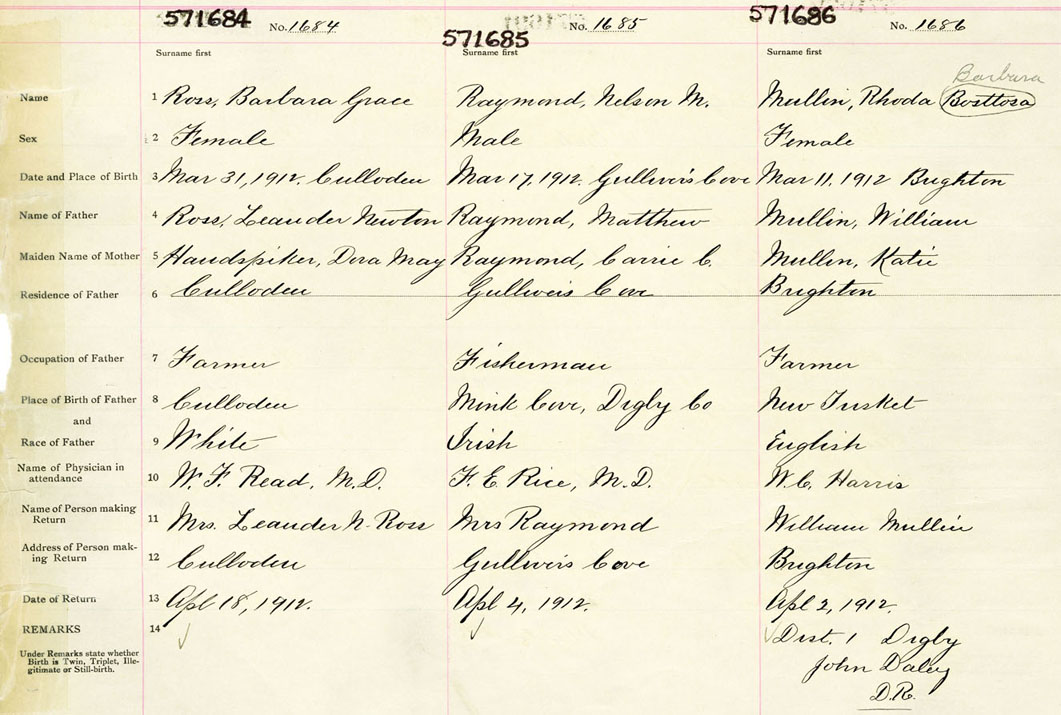 571684 No. 1684
571685 No. 1685
571686 No. 1686
Surname first Surname first Surname first
Barbara
Name 1 Ross, Barbara Grace Raymond, Nelson M. Mullin, Rhoda Bosttosa
Sex 2 Female Male Female
Date and Place of Birth 3 Mar 31, 1912. Culloden Mar 17, 1912. Gulliver's Cove Mar 11, 1912 Brighton
Name of Father 4 Ross, Leander Newton Raymond, Matthew Mullin, William
Maiden Name of Mother 5 Handspiker, Dora May Raymond, Carrie C. Mullin, Katie
Residence of Father 6 Culloden Gullivers Cove Brighton
Occupation of Father 7 Farmer Fisherman Farmer
Place of Birth of Father 8 Culloden Mink Cove, Digby Co New Tusket
and
Race of Father 9 White Irish English
Name of Physician in
attendance 10 W. F. Read, M.D. F. E. Rice, M.D. W. C. Harris
Name of Person making
Return 11 Mrs. Leander N. Ross Mrs Raymond William Mullin
Address of Person mak-
ing Return 12 Culloden Gullivers Cove Brighton
Date of Return 13 Apl 18, 1912. Apl 4, 1912. Apl 2, 1912.
REMARKS 14 Dist. 1 Digby
Under Remarks state whether
Birth is Twin, Triplet, Ille-
gitimate or Still-birth.
John Daley
D.R.